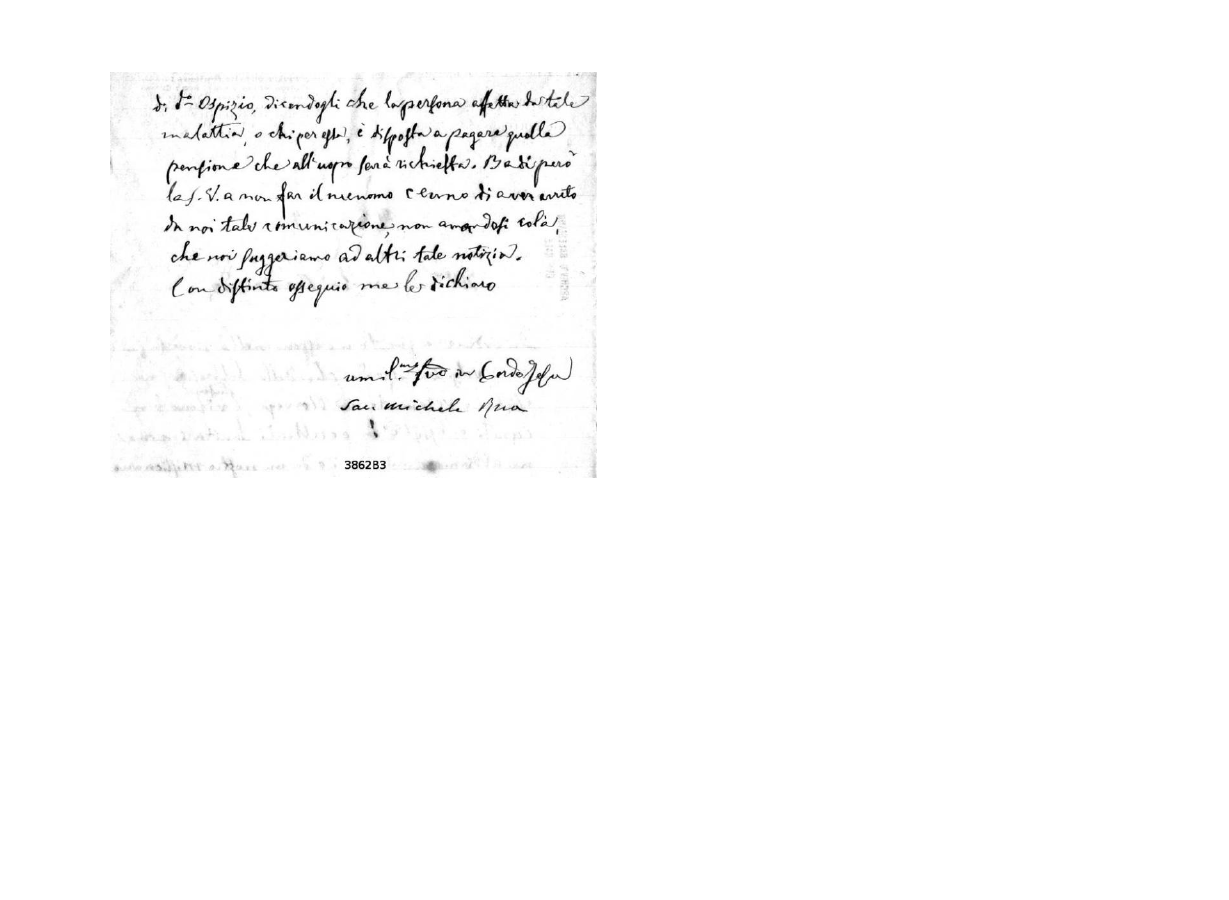 di d.º Ospizio, dicendogli che la persona affetta da tale
malattia, o chi per essa, è disposta a pagare quella
pensione che all'uopo sarà richiesta. Badi però
la S. V. a non far il menomo cenno di aver avuto
da noi tale comunicazione, non amandosi colà,
che noi suggeriamo ad altri tale notizia.
Con distinto ossequio me le dichiaro
umil.mo suo in Corde Jesu
Sac. Michele Rua
3862B3